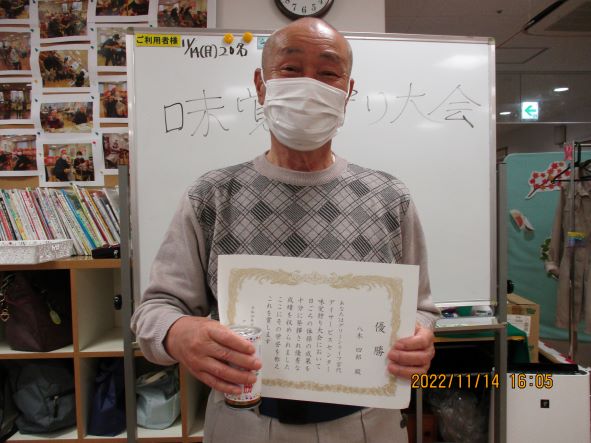 ご利用者様
11/14(月)20名
味覚狩り大会
優勝
八木 四郎 殿
あなたはグリーンライフ宮代
デイサービスセンター
味覚狩り大会において
日ごろの体操の成果を
十分に発揮され優秀な
成績を収められました
ここにその栄誉を称え
これを賞します
2022/11/14 16:05